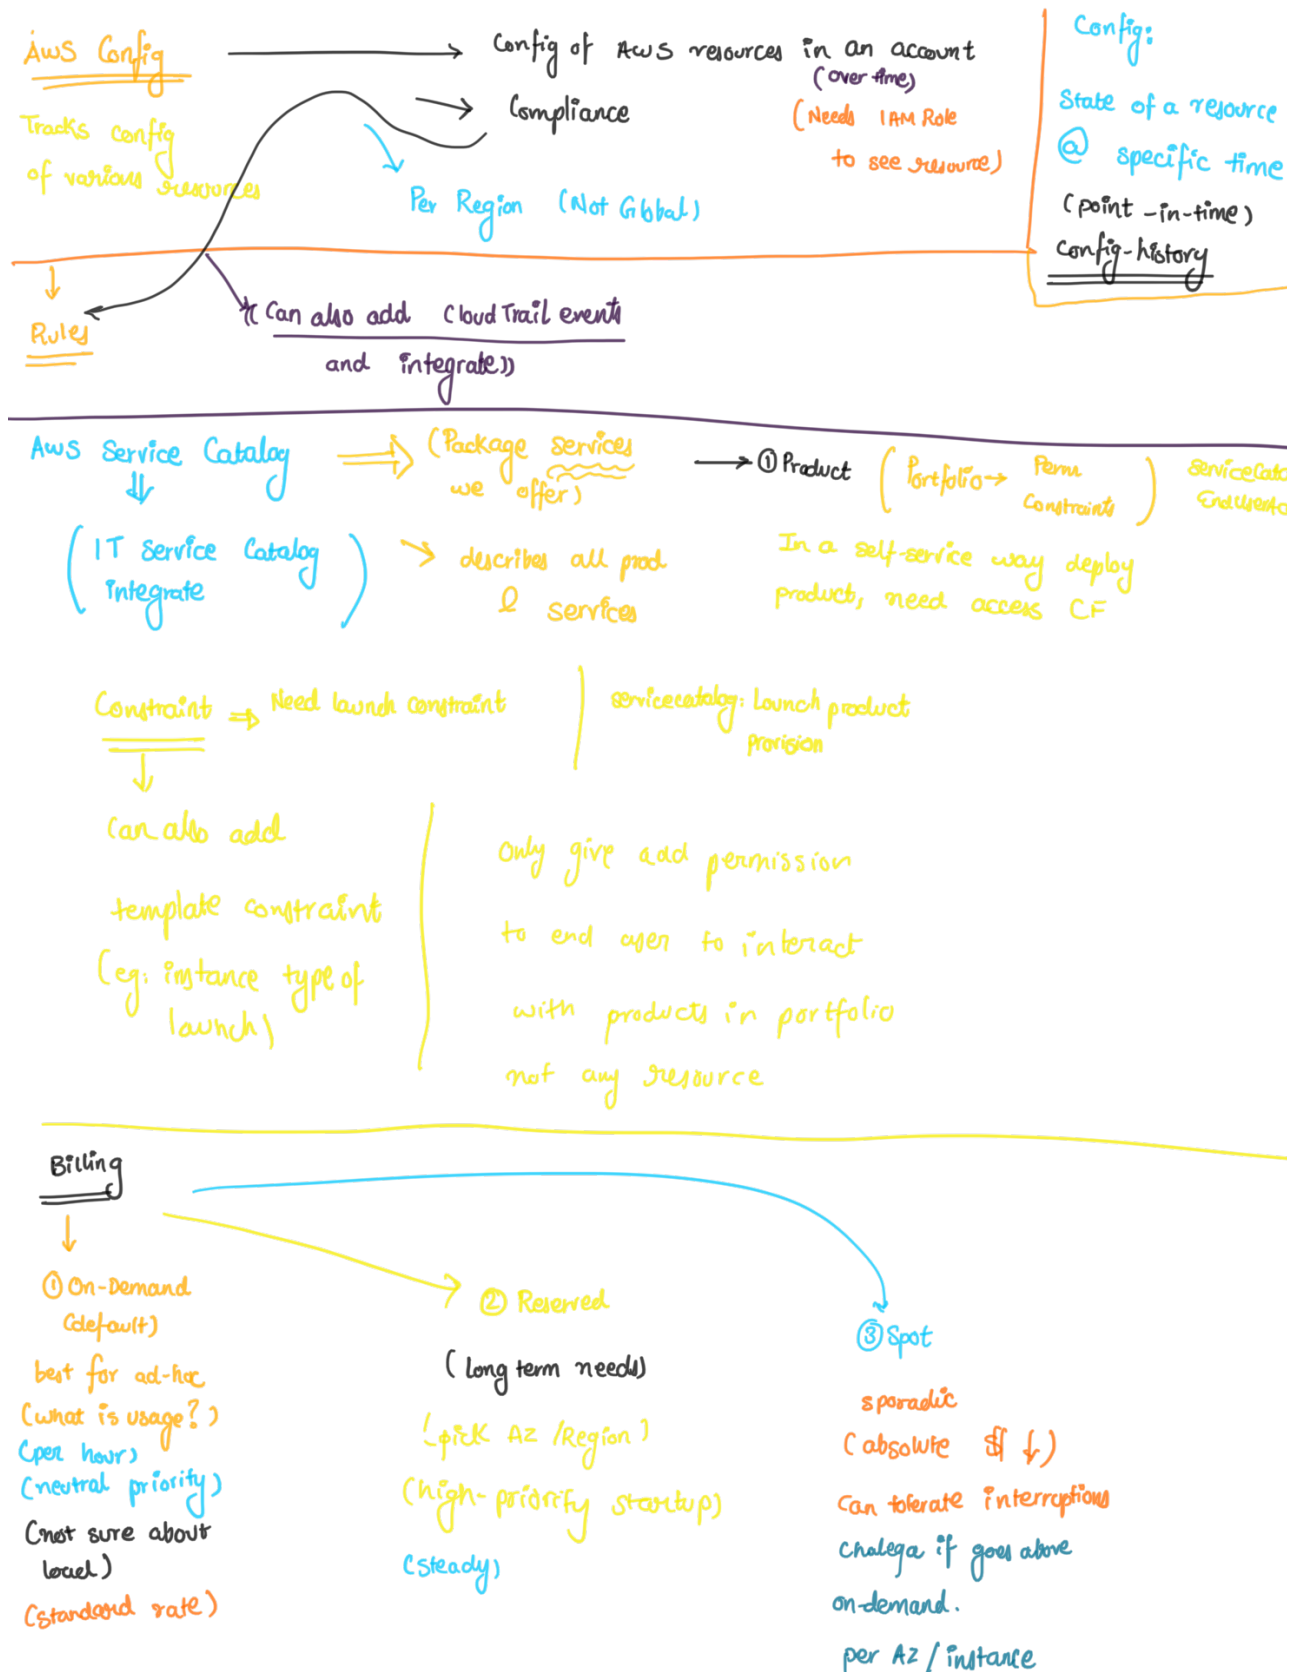 AWS Config
Config of AWS resources in an account
(over time)
Compliance
(Needs IAM Role
to see resource)
Tracks config
of various resources
Per Region (Not Global)
Config:
State of a resource
@ specific time
(point-in-time)
config-history
Rules
((Can also add CloudTrail events
and integrate))
AWS Service Catalog
(Package services
we offer)
① Product
(Portfolio→ Perm
Constraints)
serviceCata
Enduser
(IT Service Catalog
integrate)
describes all prod
& services
In a self-service way deploy
product, need access CF
Constraint
Need launch constraint
servicecatalog: Launch product
provision
Can also add
template constraint
(eg: instance type of
launch)
Only give add permission
to end user to interact
with products in portfolio
not any resource
Billing
① On-Demand
(default)
best for ad-hoc
(what is usage?)
(per hour)
(neutral priority)
(not sure about
load)
(standard rate)
② Reserved
(long term needs)
(pick AZ /Region)
(high-priority startup)
(steady)
③ Spot
sporadic
(absolute $ ↓)
can tolerate interruptions
chalega if goes above
on-demand.
per AZ / instance